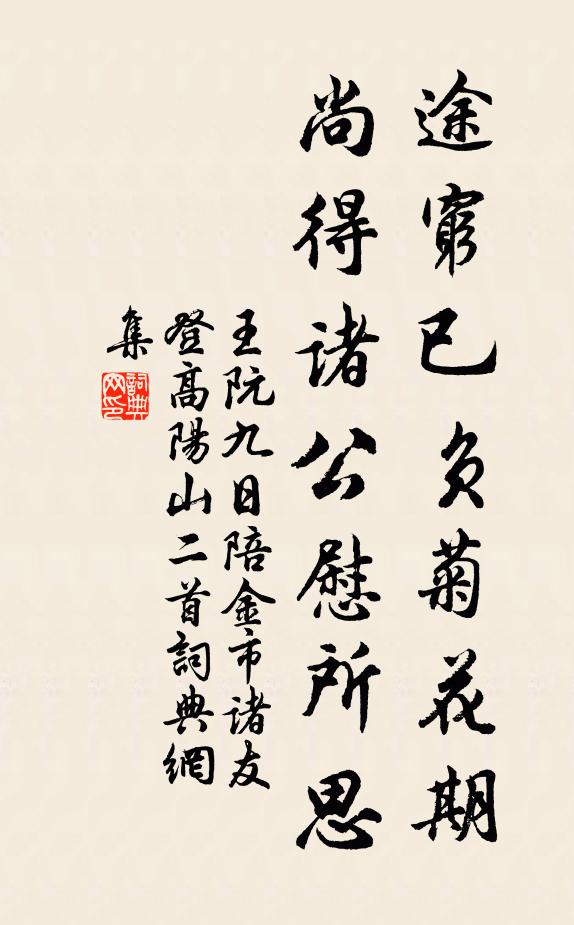 途窮已负菊花期
尚得诸公慰所思
王阮九日陪金市诸友
登高陽山二首詞典網
集
詞典
网印